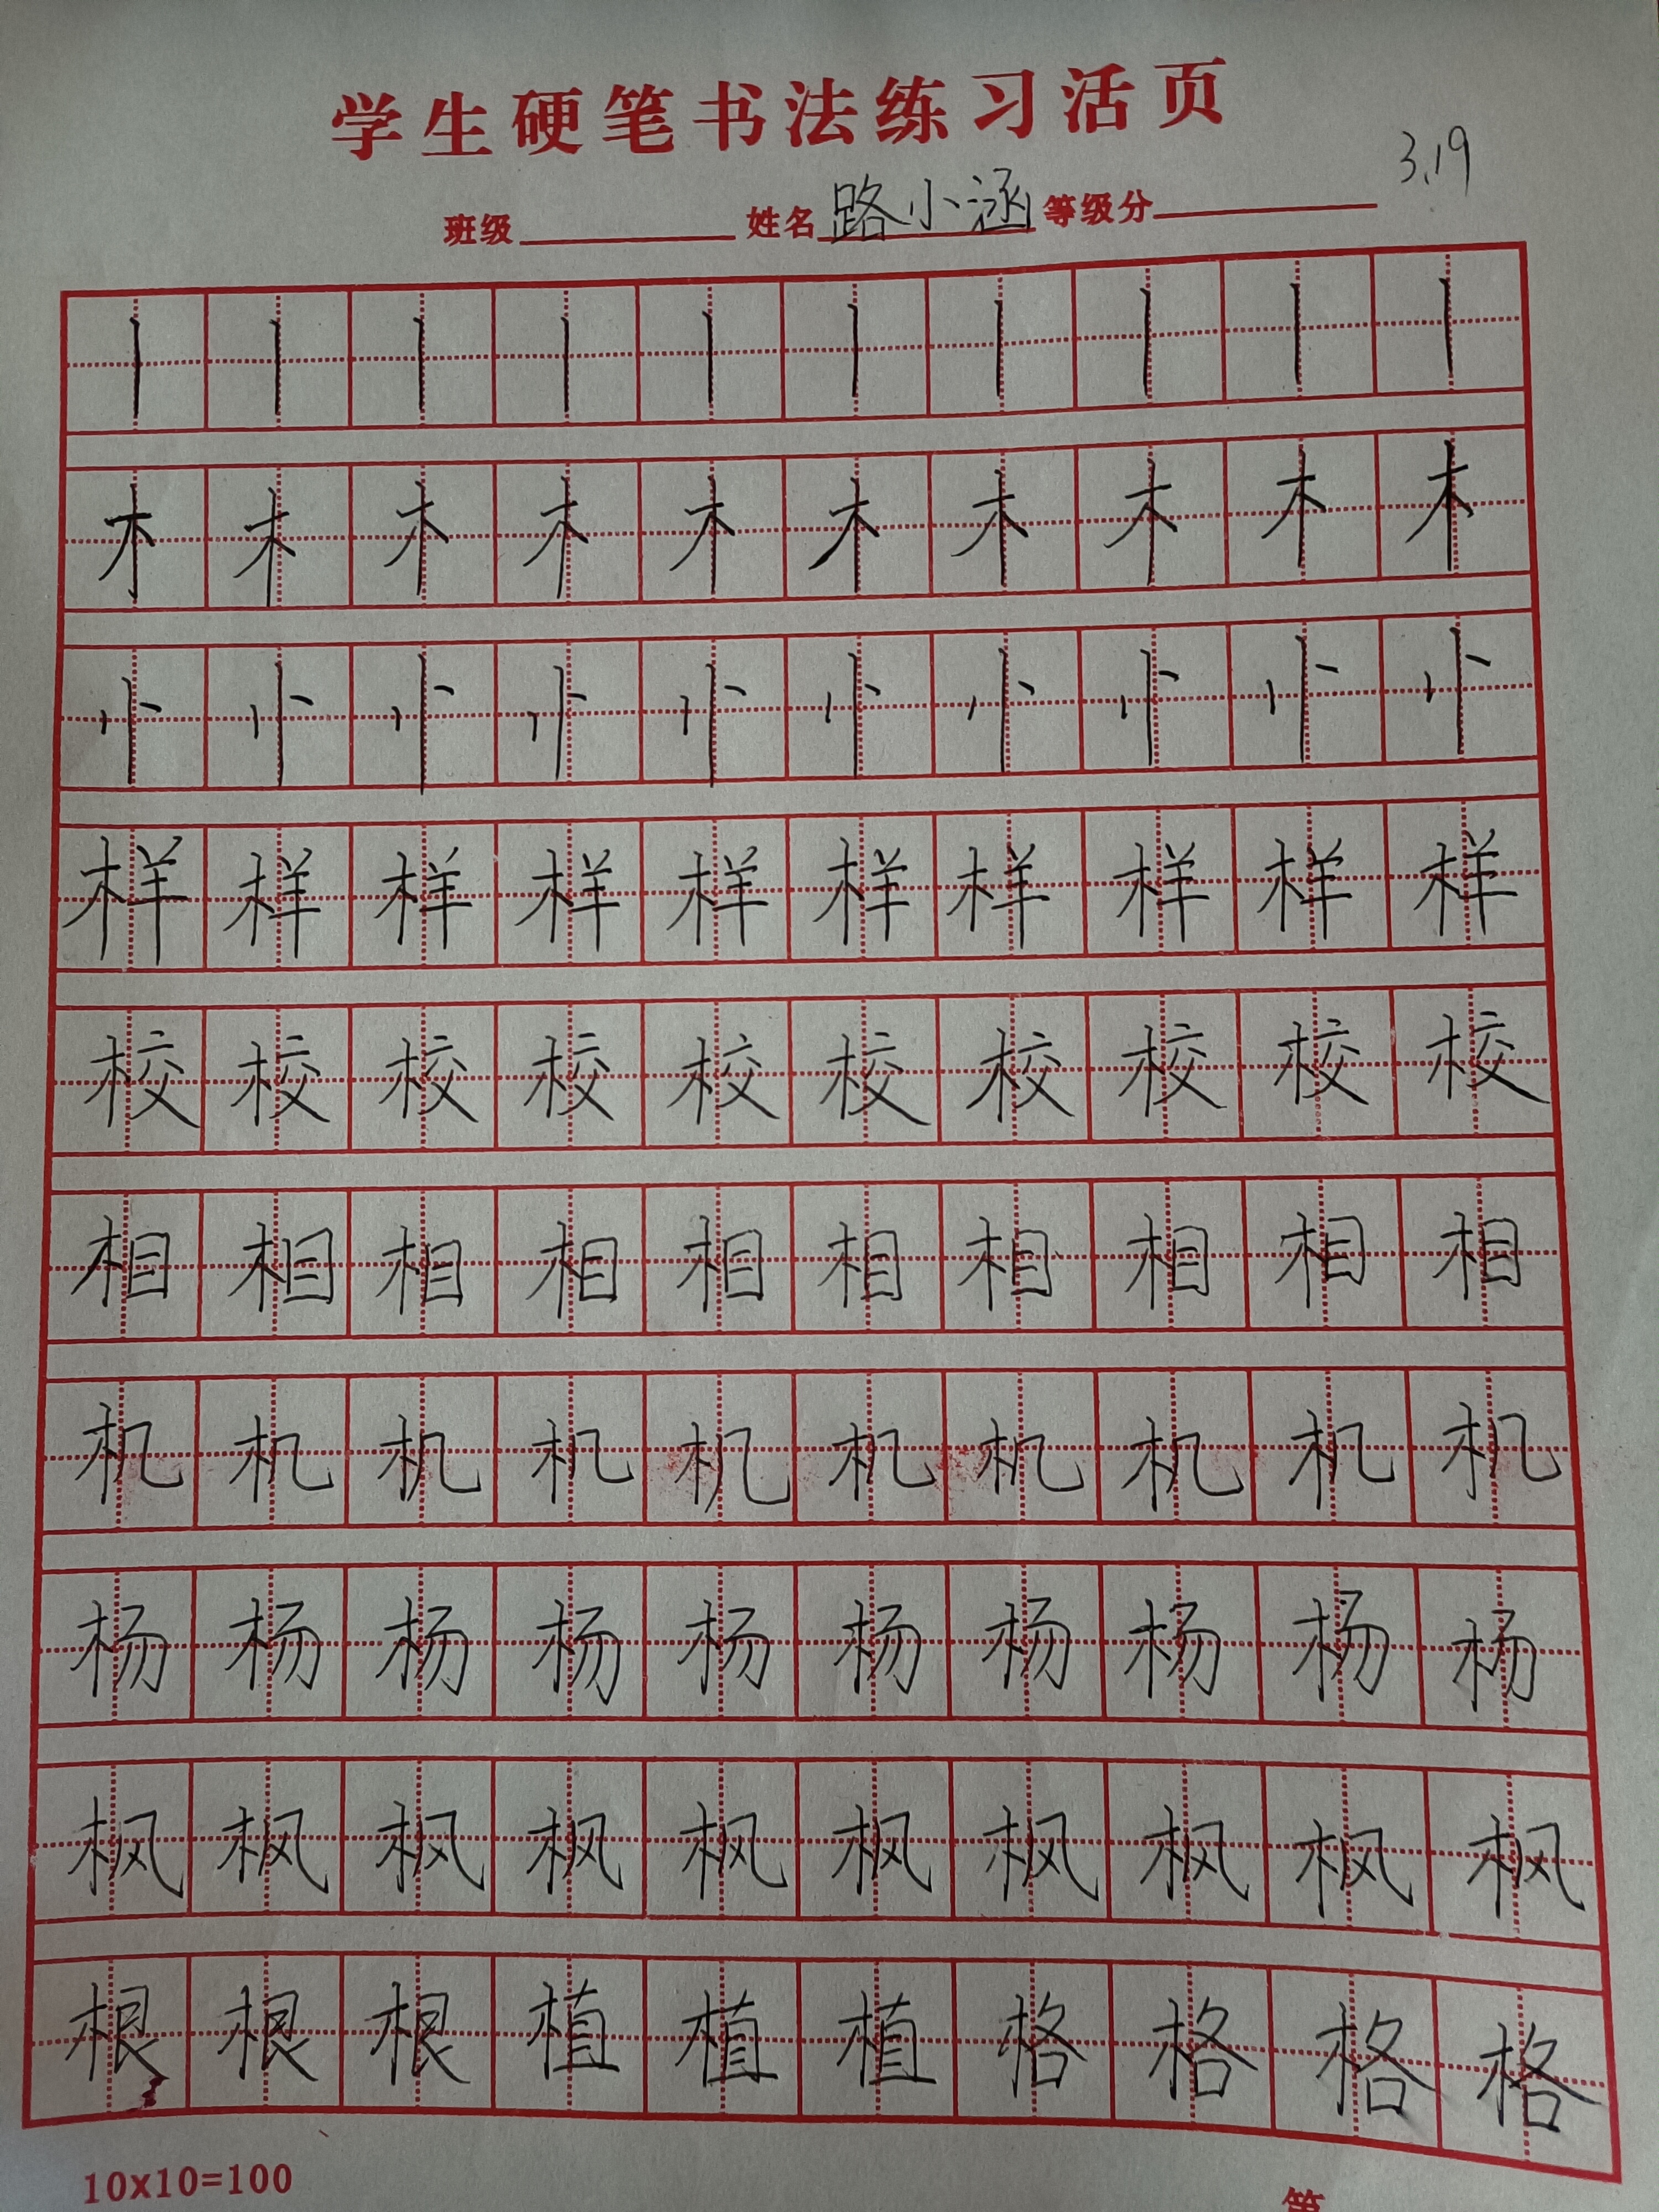 学生硬笔书法练习活页
3.19
班级 姓名 路小涵 等级分
丨 丨 丨 丨 丨 丨 丨 丨 丨 丨
木 木 木 木 木 木 木 木 木 木
小 小 小 小 小 小 小 小 小 小
样 样 样 样 样 样 样 样 样 样
校 校 校 校 校 校 校 校 校 校
相 相 相 相 相 相 相 相 相 相
机 机 机 机 机 机 机 机 机 机
杨 杨 杨 杨 杨 杨 杨 杨 杨 杨
枫 枫 枫 枫 枫 枫 枫 枫 枫 枫
根 根 根 植 植 植 格 格 格 格
10x10=100